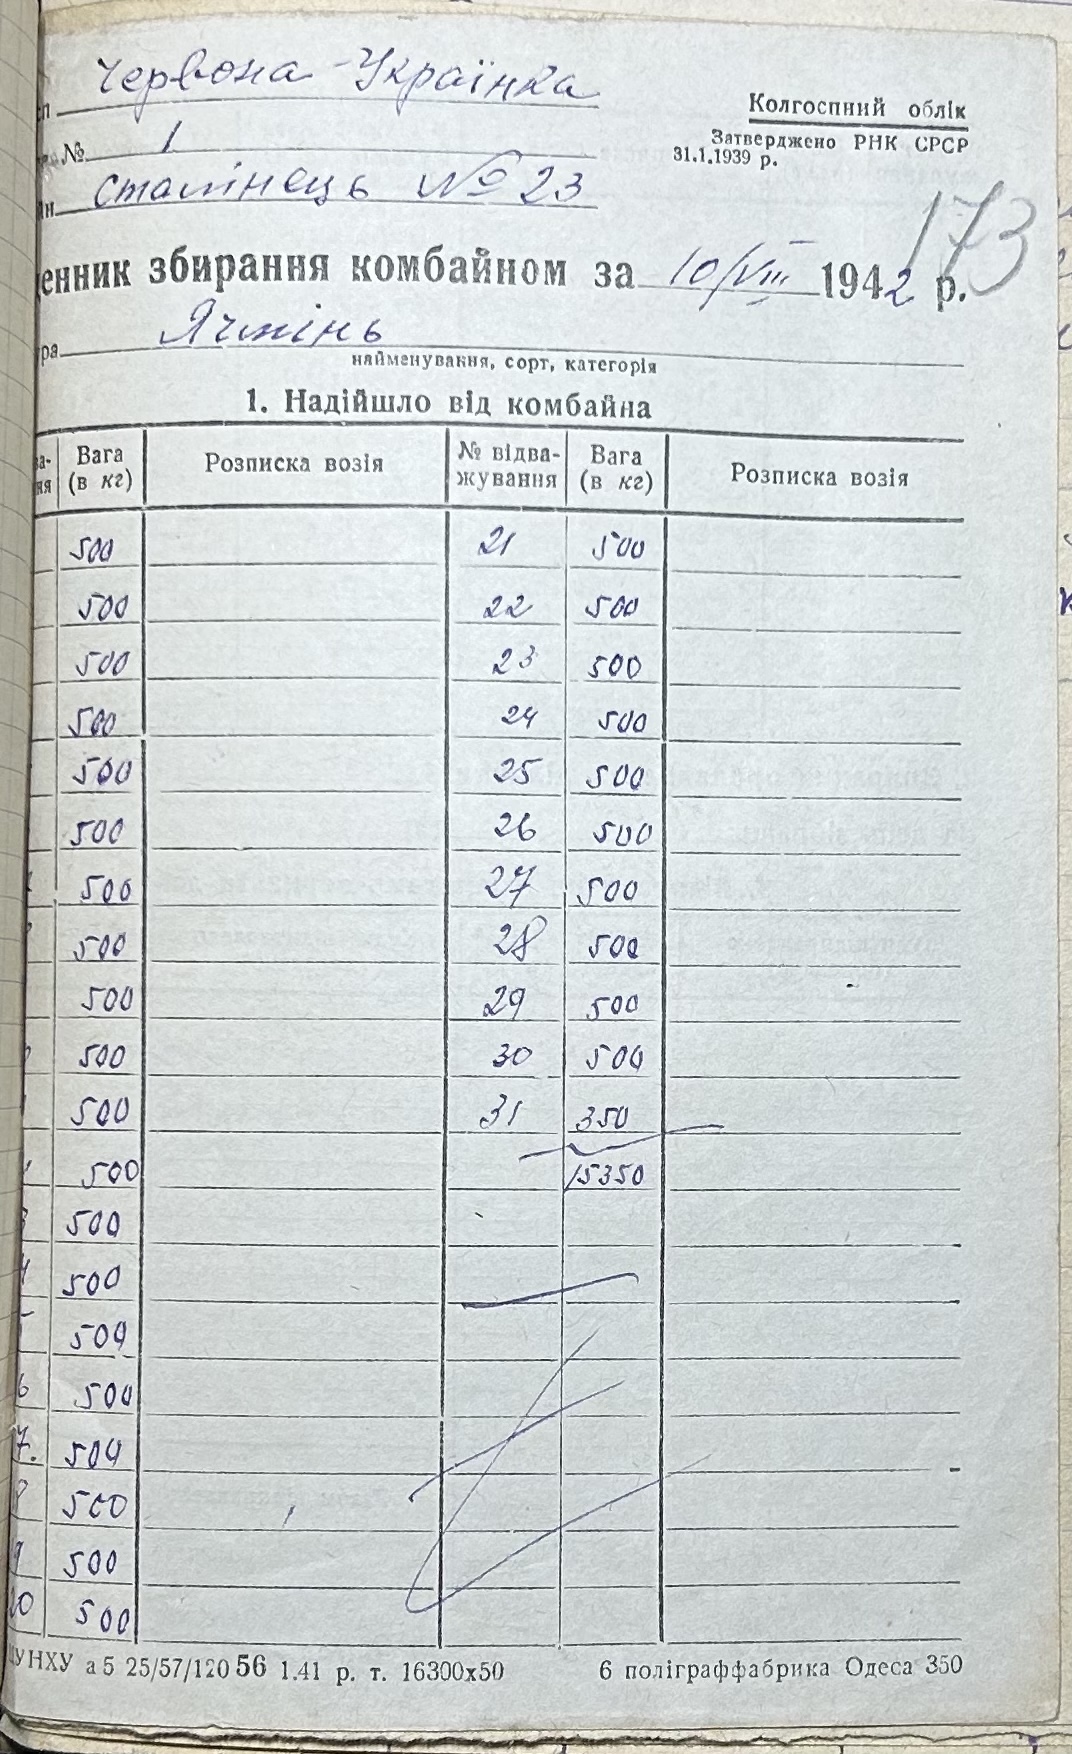 сп Червона Українка
Колгоспний облік
Затверджено РНК СРСР
31.1.1939 р.
№ 1
н Сталінець № 23
173
енник збирання комбайном за 10/VIII 1942 р.
ра Ячмінь
найменування, сорт, категорія
1. Надійшло від комбайна
ва-ня Вага (в кг) Розписка возія № відва-жування Вага (в кг) Розписка возія
500 21 500
500 22 500
500 23 500
500 24 500
500 25 500
500 26 500
500 27 500
500 28 500
500 29 500
500 30 500
500 31 350
500 15350
3 500
4 500
5 500
6 500
7. 500
8 500
9 500
20 500
УНХУ а5 25/57/120 56 1.41 р. т. 16300х50 6 поліграффабрика Одеса 350